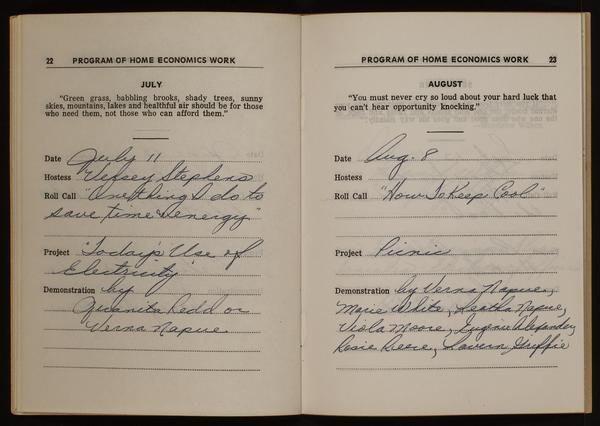 22 PROGRAM OF HOME ECONOMICS WORK
JULY
"Green grass, babbling brooks, shady trees, sunny
skies, mountains, lakes and healthful air should be for those
who need them, not those who can afford them."
Date July 11
Hostess Versey Stephens
Roll Call "One thing I do to
save time & energy"
Project "Today's Use of
Electricity
Demonstration by
Quanita Redd or
Verna Napue
PROGRAM OF HOME ECONOMICS WORK 23
AUGUST
"You must never cry so loud about your hard luck that
you can't hear opportunity knocking."
Date Aug. 8
Hostess
Roll Call "How To Keep Cool"
Project Picnic
Demonstration by Verna Napue,
Marie White, Leatha Napue,
Viola Moore, Eugenie Alexander,
Rosie Reese, Lavern Griffie